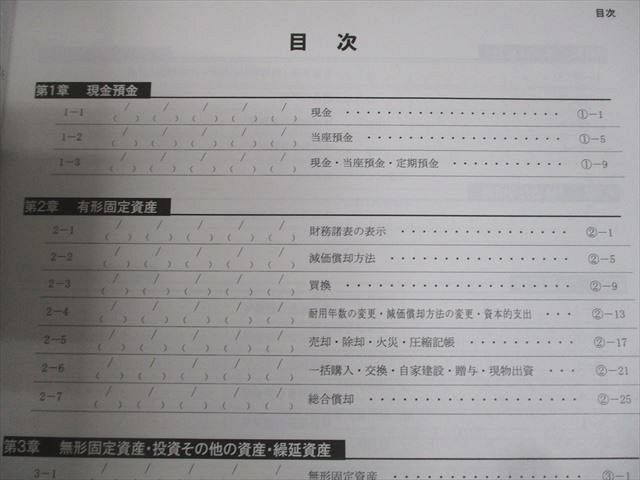 目次
目 次
第1章 現金預金
1-1 / / / / / ( ) ( ) ( ) ( ) ( ) 現金 ・・・・・・・・・・・・・・・・・ ①-1
1-2 / / / / / ( ) ( ) ( ) ( ) ( ) 当座預金 ・・・・・・・・・・・・・・・ ①-5
1-3 / / / / / ( ) ( ) ( ) ( ) ( ) 現金・当座預金・定期預金 ・・・・・・・・・ ①-9
第2章 有形固定資産
2-1 / / / / / ( ) ( ) ( ) ( ) ( ) 財務諸表の表示 ・・・・・・・・・・・・・ ②-1
2-2 / / / / / ( ) ( ) ( ) ( ) ( ) 減価償却方法 ・・・・・・・・・・・・・・ ②-5
2-3 / / / / / ( ) ( ) ( ) ( ) ( ) 買換 ・・・・・・・・・・・・・・・・・ ②-9
2-4 / / / / / ( ) ( ) ( ) ( ) ( ) 耐用年数の変更・減価償却方法の変更・資本的支出 ・・・ ②-13
2-5 / / / / / ( ) ( ) ( ) ( ) ( ) 売却・除却・火災・圧縮記帳 ・・・・・・・・ ②-17
2-6 / / / / / ( ) ( ) ( ) ( ) ( ) 一括購入・交換・自家建設・贈与・現物出資 ・・・ ②-21
2-7 / / / / / ( ) ( ) ( ) ( ) ( ) 総合償却 ・・・・・・・・・・・・・・・ ②-25
第3章 無形固定資産・投資その他の資産・繰延資産
3-1 / / / / / 無形固定資産 ・・・・・・・・・・・・・・ ③-1